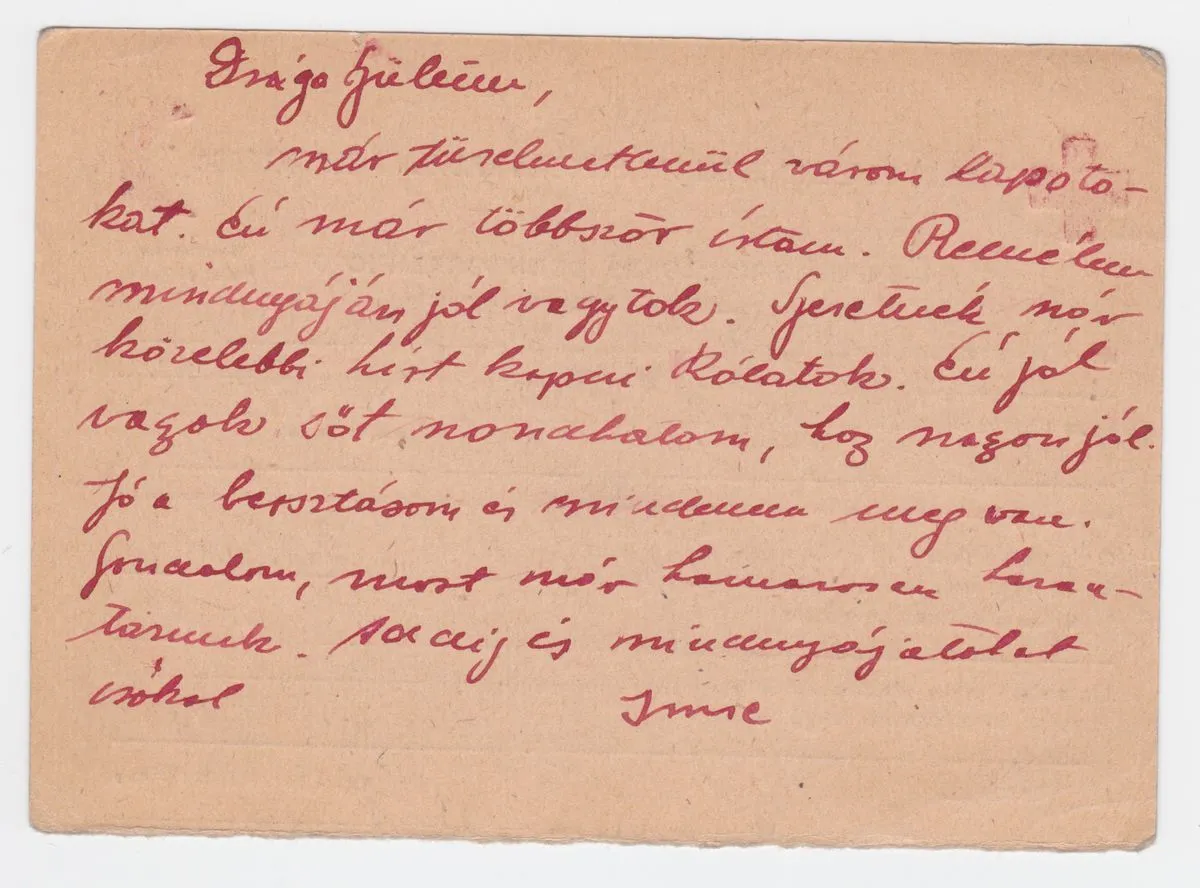 Drága Szüleim,
már türelmetlenül várom lapoto-
kat. Én már többször írtam. Remélem
mindnyáján jól vagytok. Szeretnék már
közelebbi hírt kapni Rólatok. Én jól
vagyok sőt mondhatom, hogy nagyon jól.
Jó a beosztásom és mindenem meg van.
Gondolom, most már hamarosan haza
térünk. Addig is mindnyájatokat
csókol Imre